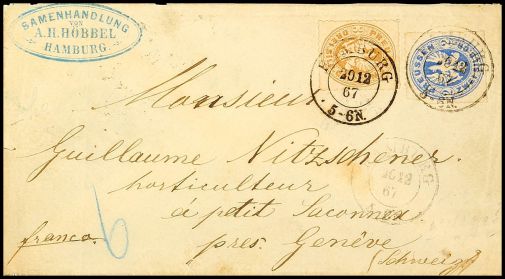 SAMENHANDLUNG
VON
A.H. HÖBBEL
HAMBURG
PREUSSEN
HAMBURG
20 12
67
5-6N.
Monsieur
Guillaume Nitzschener
horticulteur
à petit Saconnex
près Genève
(Schweiz)
franco.
6
HAMBURG
20 12
67